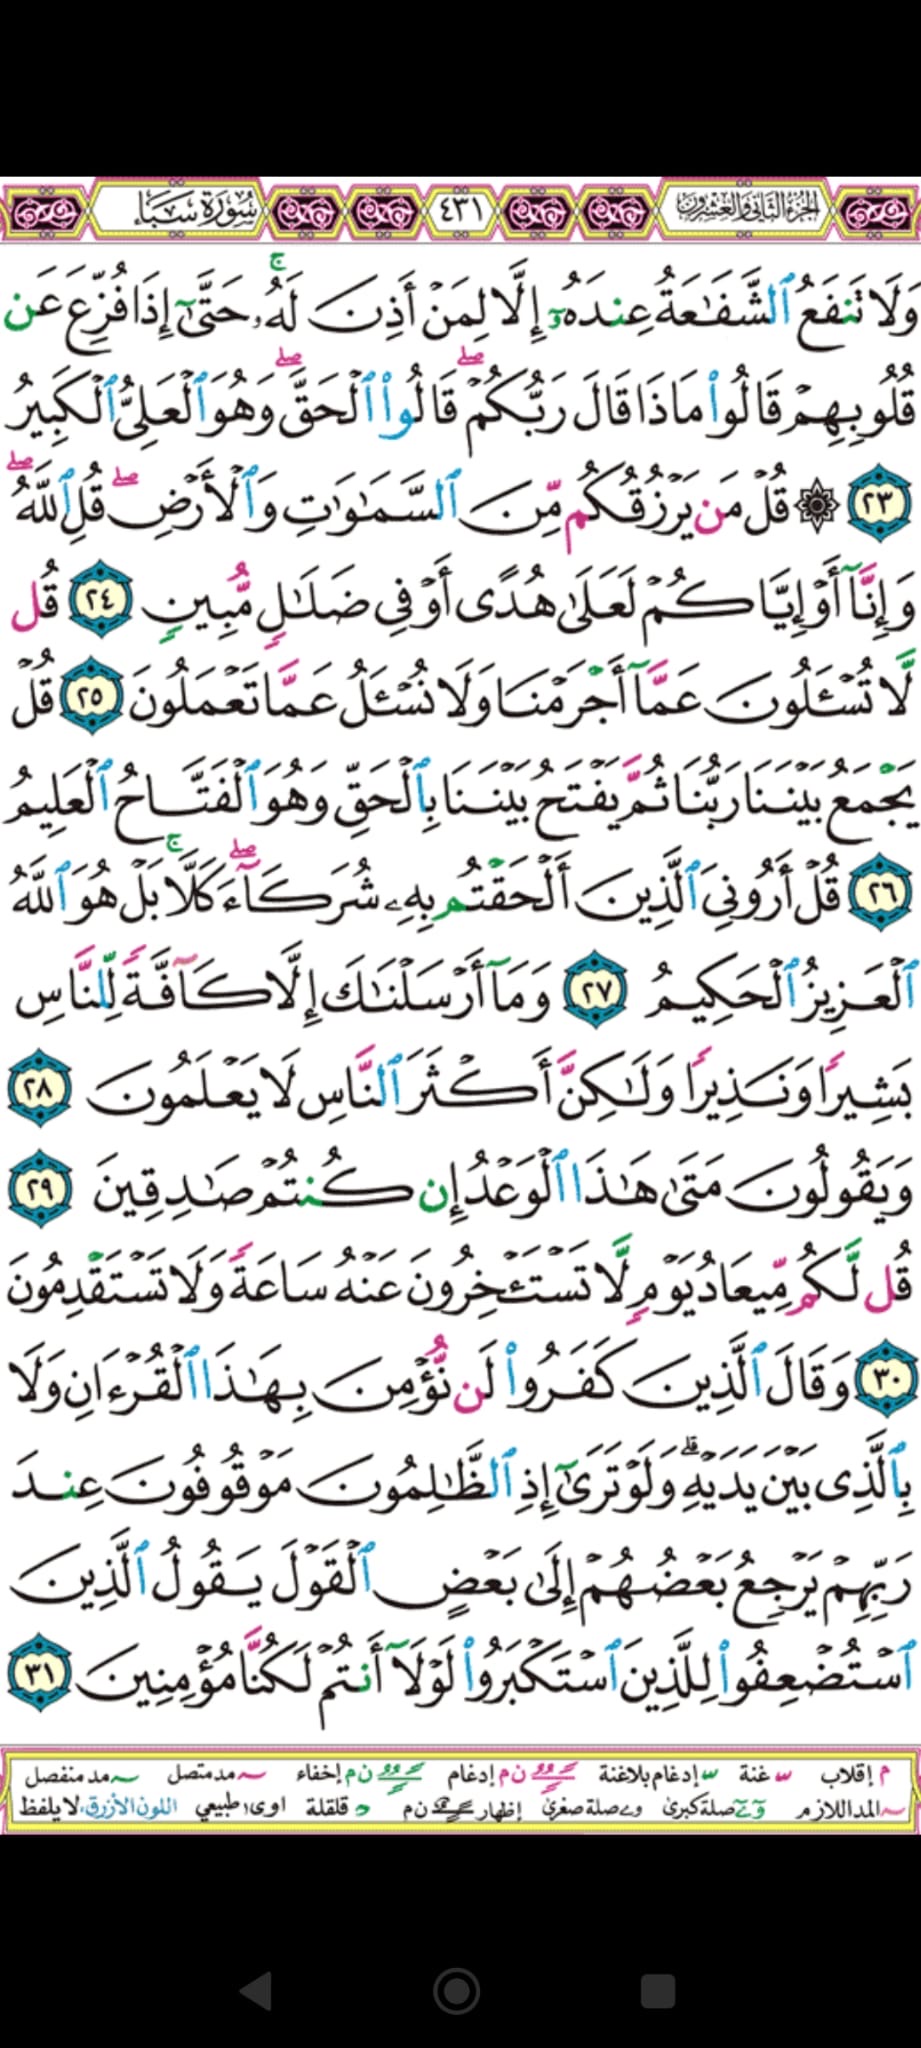 الجزء الثاني والعشرون ٤٣١ سورة سبإ
وَلَا تَنفَعُ ٱلشَّفَٰعَةُ عِندَهُۥٓ إِلَّا لِمَنْ أَذِنَ لَهُۥ ۚ حَتَّىٰٓ إِذَا فُزِّعَ عَن
قُلُوبِهِمْ قَالُوا۟ مَاذَا قَالَ رَبُّكُمْ ۖ قَالُوا۟ ٱلْحَقَّ ۖ وَهُوَ ٱلْعَلِىُّ ٱلْكَبِيرُ
٢٣ ۞ قُلْ مَن يَرْزُقُكُم مِّنَ ٱلسَّمَٰوَٰتِ وَٱلْأَرْضِ ۖ قُلِ ٱللَّهُ ۖ
وَإِنَّآ أَوْ إِيَّاكُمْ لَعَلَىٰ هُدًى أَوْ فِى ضَلَٰلٍ مُّبِينٍ ٢٤ قُل
لَّا تُسْـَٔلُونَ عَمَّآ أَجْرَمْنَا وَلَا نُسْـَٔلُ عَمَّا تَعْمَلُونَ ٢٥ قُلْ
يَجْمَعُ بَيْنَنَا رَبُّنَا ثُمَّ يَفْتَحُ بَيْنَنَا بِٱلْحَقِّ وَهُوَ ٱلْفَتَّاحُ ٱلْعَلِيمُ
٢٦ قُلْ أَرُونِىَ ٱلَّذِينَ أَلْحَقْتُم بِهِۦ شُرَكَآءَ ۖ كَلَّا ۚ بَلْ هُوَ ٱللَّهُ
ٱلْعَزِيزُ ٱلْحَكِيمُ ٢٧ وَمَآ أَرْسَلْنَٰكَ إِلَّا كَآفَّةً لِّلنَّاسِ
بَشِيرًا وَنَذِيرًا وَلَٰكِنَّ أَكْثَرَ ٱلنَّاسِ لَا يَعْلَمُونَ ٢٨
وَيَقُولُونَ مَتَىٰ هَٰذَا ٱلْوَعْدُ إِن كُنتُمْ صَٰدِقِينَ ٢٩
قُل لَّكُم مِّيعَادُ يَوْمٍ لَّا تَسْتَـْٔخِرُونَ عَنْهُ سَاعَةً وَلَا تَسْتَقْدِمُونَ
٣٠ وَقَالَ ٱلَّذِينَ كَفَرُوا۟ لَن نُّؤْمِنَ بِهَٰذَا ٱلْقُرْءَانِ وَلَا
بِٱلَّذِى بَيْنَ يَدَيْهِ ۗ وَلَوْ تَرَىٰٓ إِذِ ٱلظَّٰلِمُونَ مَوْقُوفُونَ عِندَ
رَبِّهِمْ يَرْجِعُ بَعْضُهُمْ إِلَىٰ بَعْضٍ ٱلْقَوْلَ يَقُولُ ٱلَّذِينَ
ٱسْتُضْعِفُوا۟ لِلَّذِينَ ٱسْتَكْبَرُوا۟ لَوْلَآ أَنتُمْ لَكُنَّا مُؤْمِنِينَ ٣١
م إقلاب غنة إدغام بلاغنة ن م إدغام ن م إخفاء مد متصل مد منفصل
المد اللازم صلة كبرى صلة صغرى إظهار ن م قلقلة اوى طبيعي اللون الأزرق، لا يلفظ